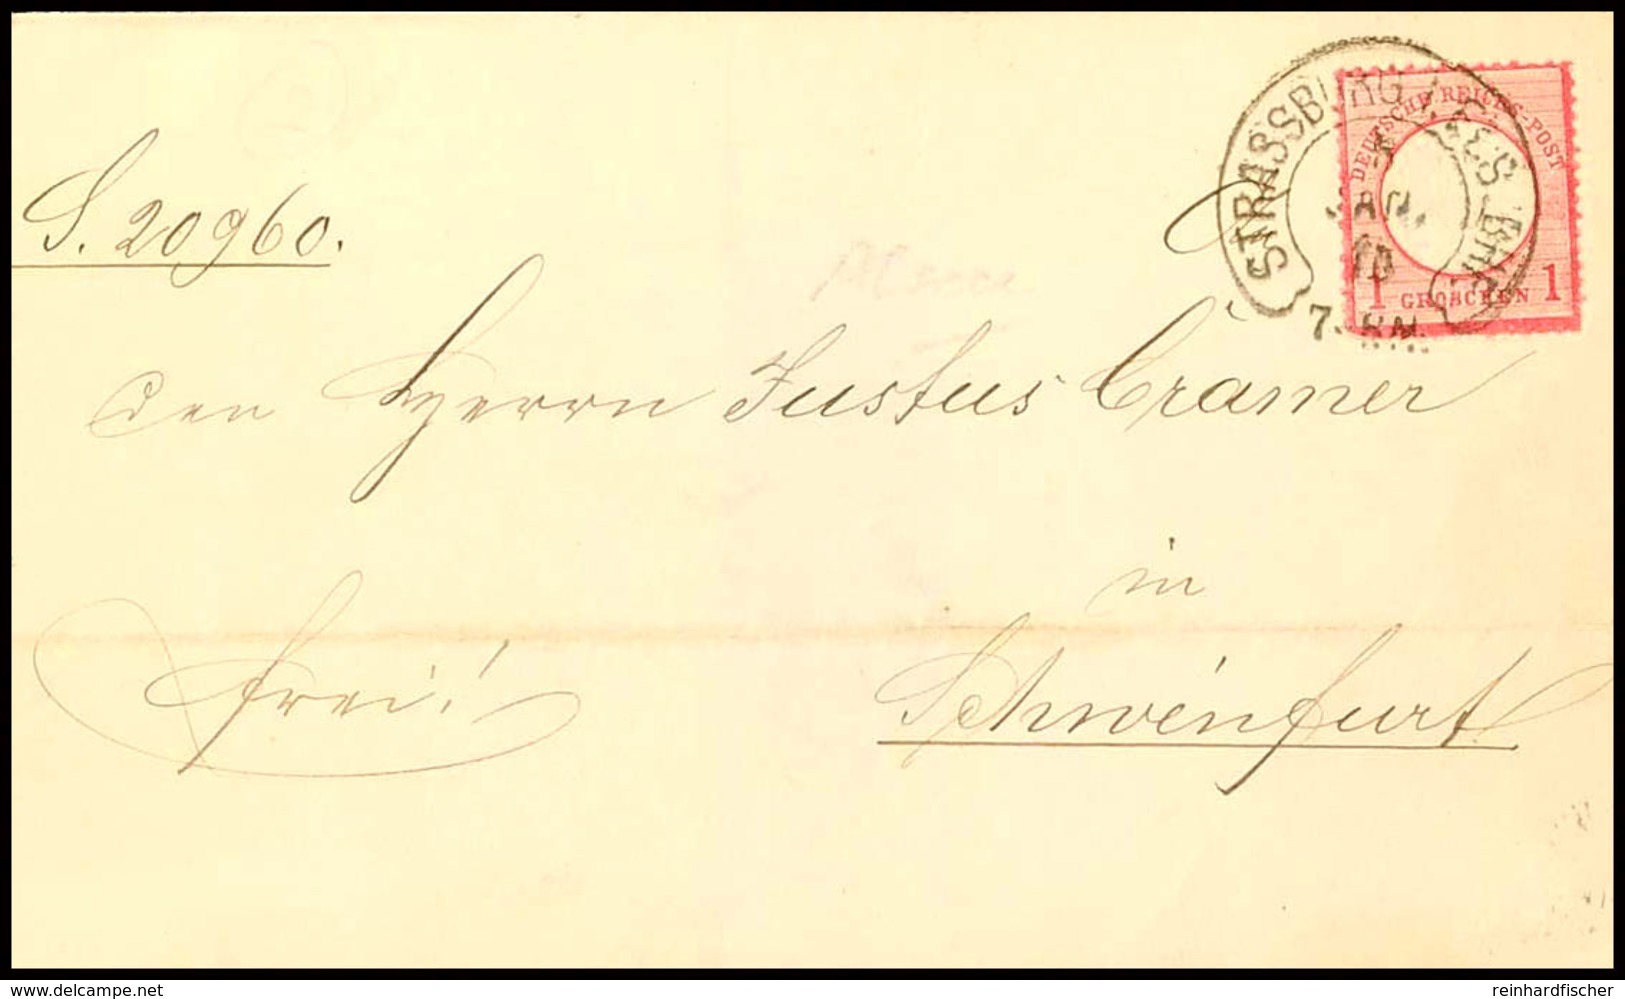 S. 20960.
STRASSBURG
DEUTSCHE REICHS-POST
JAN.
1 GROSCHEN 1
7-8 N.
den Herrn Justus Crämer
in
Frei!
Schweinfurt
www.delcampe.net
reinhardfischer